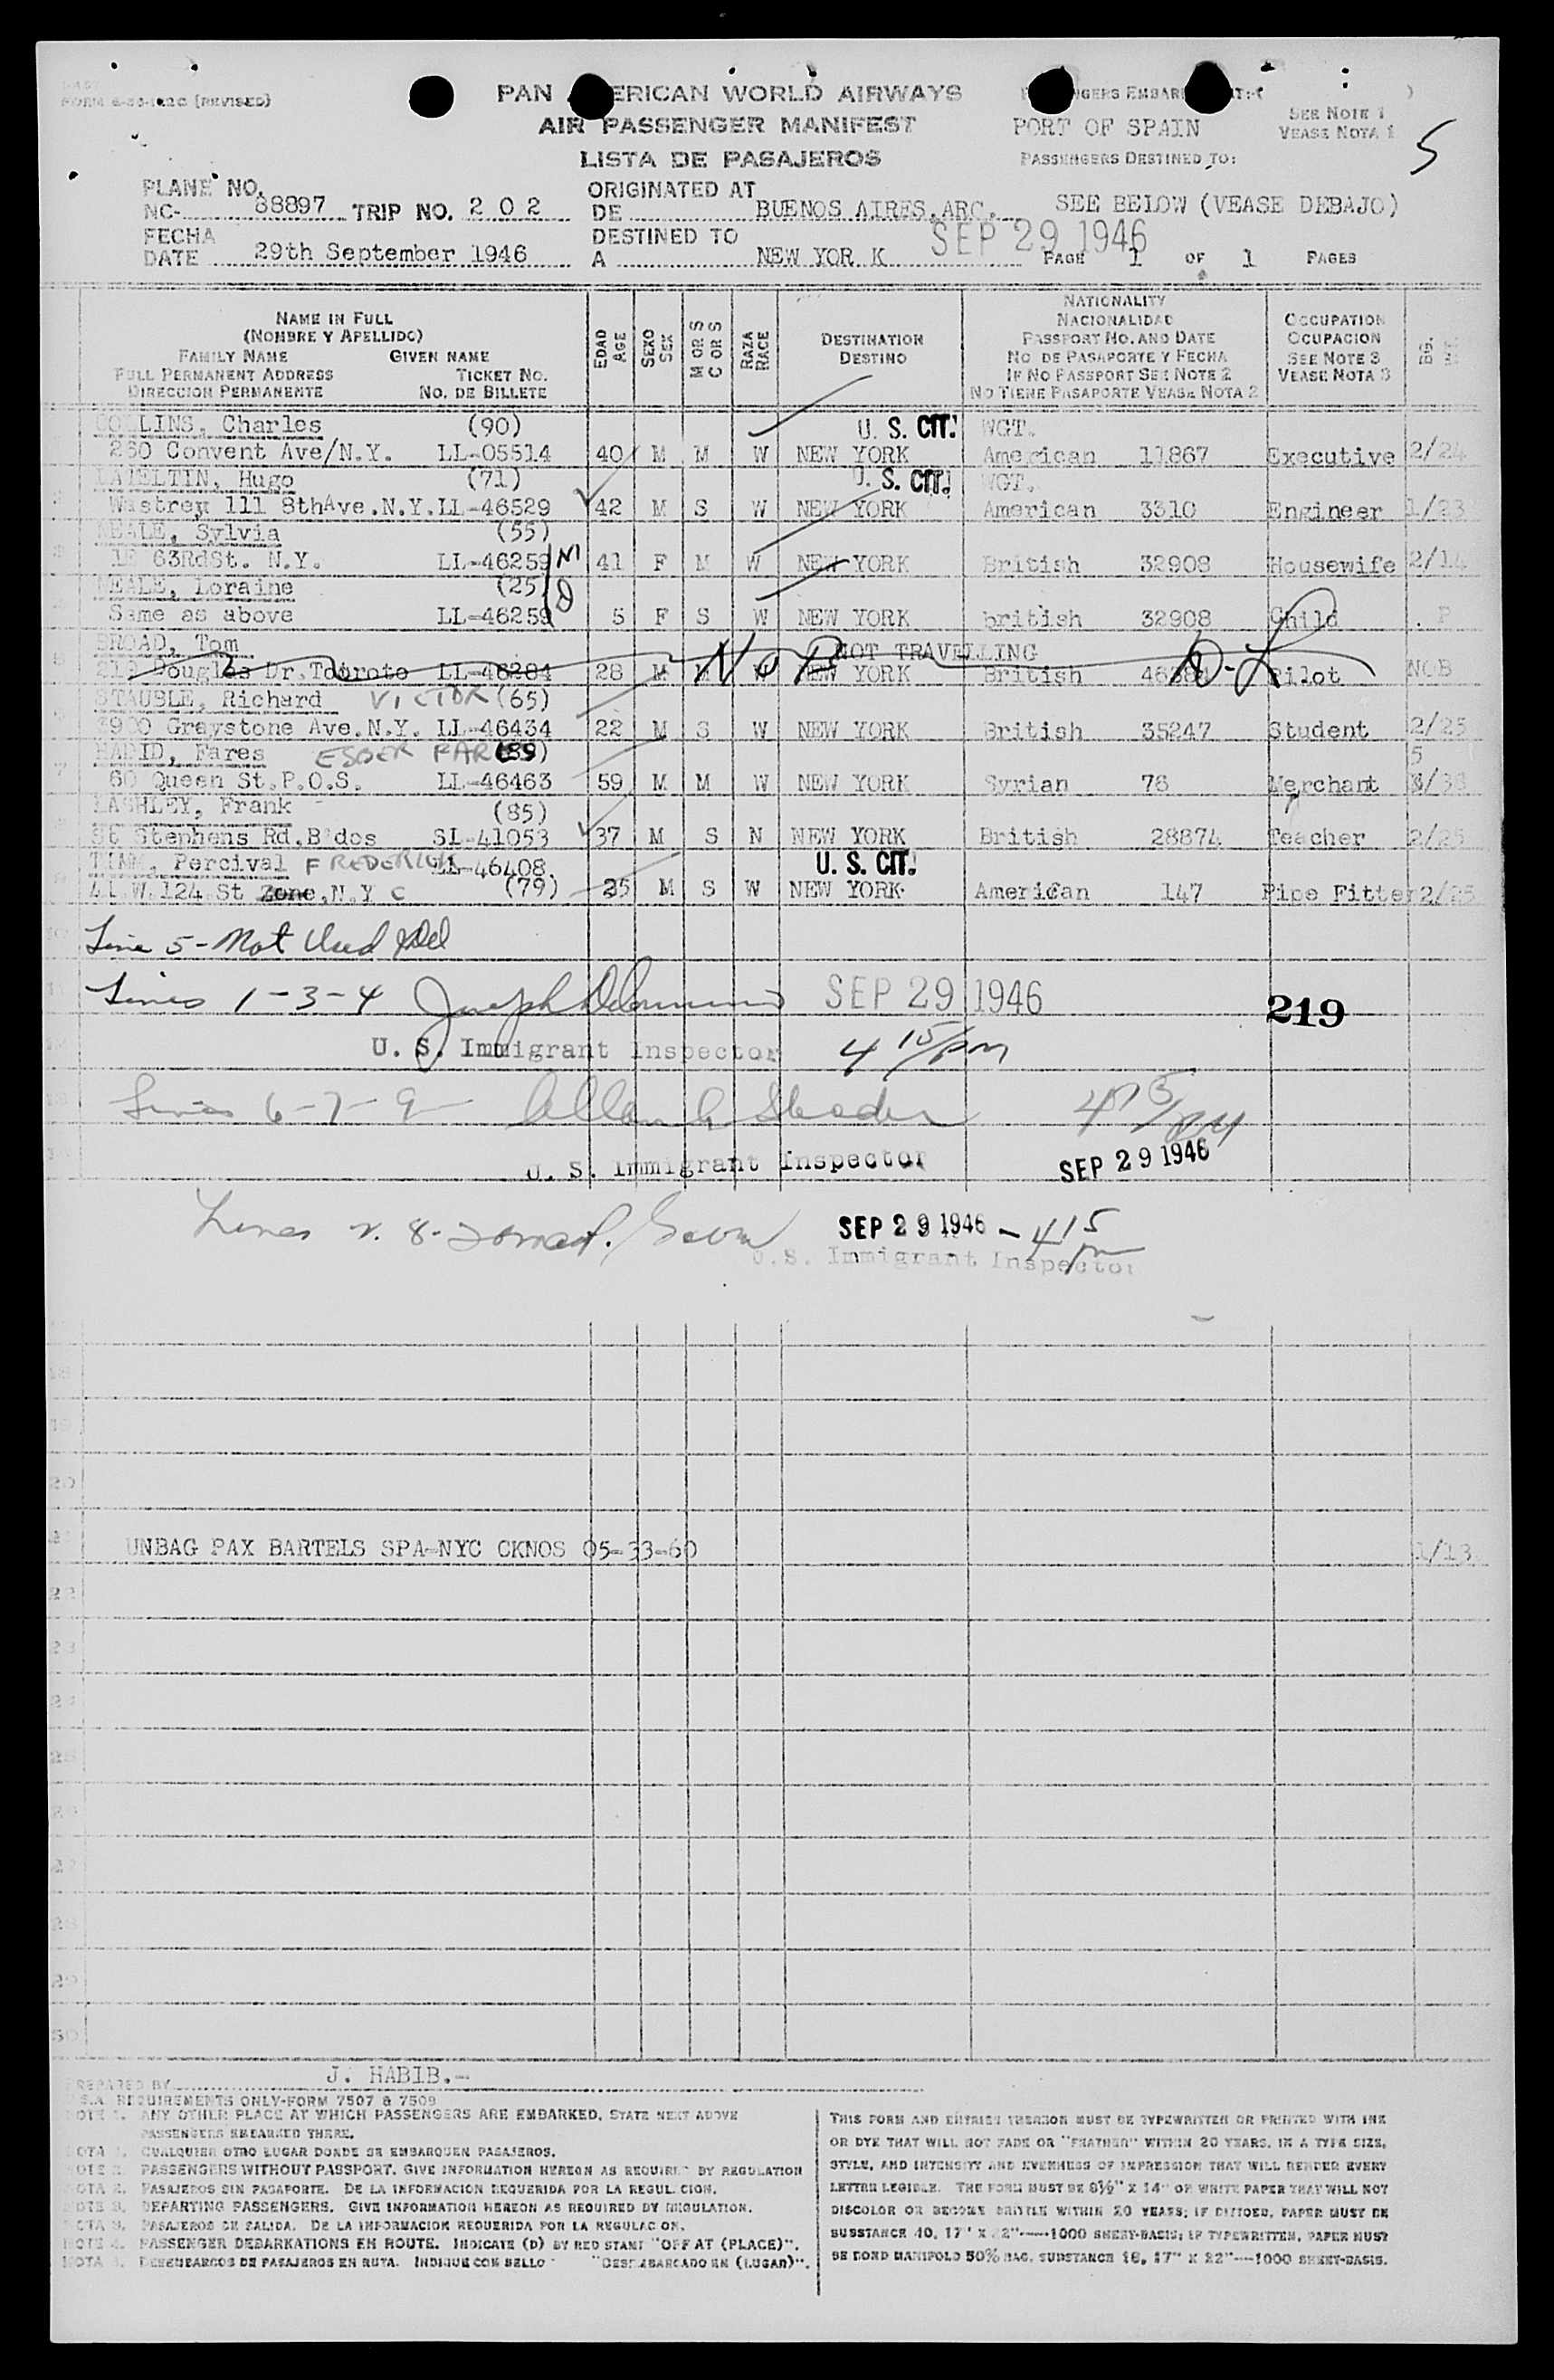 PAN AMERICAN WORLD AIRWAYS
AIR PASSENGER MANIFEST
LISTA DE PASAJEROS
PORT OF SPAIN
SEE NOTE 1
VEASE NOTA 1
PASSENGERS DESTINED TO:
5
PLANE NO.
NC- 88897 TRIP NO. 2 0 2
ORIGINATED AT
DE BUENOS AIRES, ARG.
SEE BELOW (VEASE DEBAJO)
FECHA
DATE 29th September 1946
DESTINED TO
A NEW YOR K
SEP 29 1946
PAGE 1 OF 1 PAGES
NAME IN FULL
(NOMBRE Y APELLIDO)
FAMILY NAME GIVEN NAME
FULL PERMANENT ADDRESS TICKET NO.
DIRECCION PERMANENTE NO. DE BILLETE
EDAD AGE
SEXO SEX
M OR S C OR S
RAZA RACE
DESTINATION
DESTINO
NATIONALITY
NACIONALIDAD
PASSPORT NO. AND DATE
NO. DE PASAPORTE Y FECHA
IF NO PASSPORT SEE NOTE 2
NO TIENE PASAPORTE VEASE NOTA 2
OCCUPATION
OCUPACION
SEE NOTE 3
VEASE NOTA 3
COLLINS, Charles (90) U. S. CIT. WGT.
260 Convent Ave/N.Y. LL-05514 40 M M W NEW YORK American 11867 Executive 2/24
Hugo (71) U. S. CIT. WGT.
111 8thAve.N.Y. LL-46529 42 M S W NEW YORK American 3310 Engineer 1/23
NEALE, Sylvia (55)
63RdSt. N.Y. LL-46259 41 F M W NEW YORK British 32908 Housewife 2/14
NEALE, Loraine (25)
Same as above LL-46259 5 F S W NEW YORK british 32908 Child
BROAD, Tom NOT TRAVELLING
219 Douglas Dr. LL-46284 28 M NEW YORK British Pilot NOB
STAUBLE, Richard VICTOR (65)
3900 Graystone Ave.N.Y. LL-46434 22 M S W NEW YORK British 35247 Student 2/25
HABID, Fares
60 Queen St.P.O.S. LL-46463 59 M M W NEW YORK Syrian 76 Merchant
LASHLEY, Frank (85)
St Stephens Rd.B'dos SL-41053 37 M S N NEW YORK British 28874 Teacher 2/25
Percival FREDERICK LL-46408. U. S. CIT.
W.124 St Zone,N.Y C (79) 25 M S W NEW YORK American 147 Pipe Fitter 2/25
Line 5 - Not Used
Lines 1-3-4 Joseph SEP 29 1946
219
U. S. Immigrant Inspector 4 15/pm
Lines 6-7-9 4 15/PM
U. S. Immigrant Inspector SEP 29 1946
Lines 2. 8. SEP 29 1946 - 4 15 pm
U.S. Immigrant Inspector
UNBAG PAX BARTELS SPA-NYC CKNOS 05-33-60 1/13
PREPARED BY J. HABIB.-
REQUIREMENTS ONLY-FORM 7507 & 7509
NOTE 1. ANY OTHER PLACE AT WHICH PASSENGERS ARE EMBARKED, STATE NEXT ABOVE
PASSENGERS EMBARKED THERE.
NOTA 1. CUALQUIER OTRO LUGAR DONDE SE EMBARQUEN PASAJEROS.
NOTE 2. PASSENGERS WITHOUT PASSPORT. GIVE INFORMATION HEREON AS REQUIRED BY REGULATION
NOTA 2. PASAJEROS SIN PASAPORTE. DE LA INFORMACION REQUERIDA POR LA REGULACION.
NOTE 3. DEPARTING PASSENGERS. GIVE INFORMATION HEREON AS REQUIRED BY REGULATION.
NOTA 3. PASAJEROS DE SALIDA. DE LA INFORMACION REQUERIDA POR LA REGULACION.
NOTE 4. PASSENGER DEBARKATIONS EN ROUTE. INDICATE (D) BY RED STAMP "OFF AT (PLACE)".
NOTA 4. DESEMBARCOS DE PASAJEROS EN RUTA. INDIQUE CON SELLO "DESEMBARCADO EN (LUGAR)".
THIS FORM AND ENTRIES THEREON MUST BE TYPEWRITTEN OR PRINTED WITH INK
OR DYE THAT WILL NOT FADE OR "FEATHER" WITHIN 20 YEARS, IN A TYPE SIZE,
STYLE, AND INTENSITY AND EVENNESS OF IMPRESSION THAT WILL RENDER EVERY
LETTER LEGIBLE. THE FORM MUST BE 8½" X 14" OF WHITE PAPER THAT WILL NOT
DISCOLOR OR BECOME BRITTLE WITHIN 20 YEARS; IF DITTOED, PAPER MUST BE
SUBSTANCE 40, 17" X 22"—1000 SHEET-BASIS; IF TYPEWRITTEN, PAPER MUST
BE BOND MANIFOLD 50% RAG, SUBSTANCE 16, 17" X 22"—1000 SHEET-BASIS.